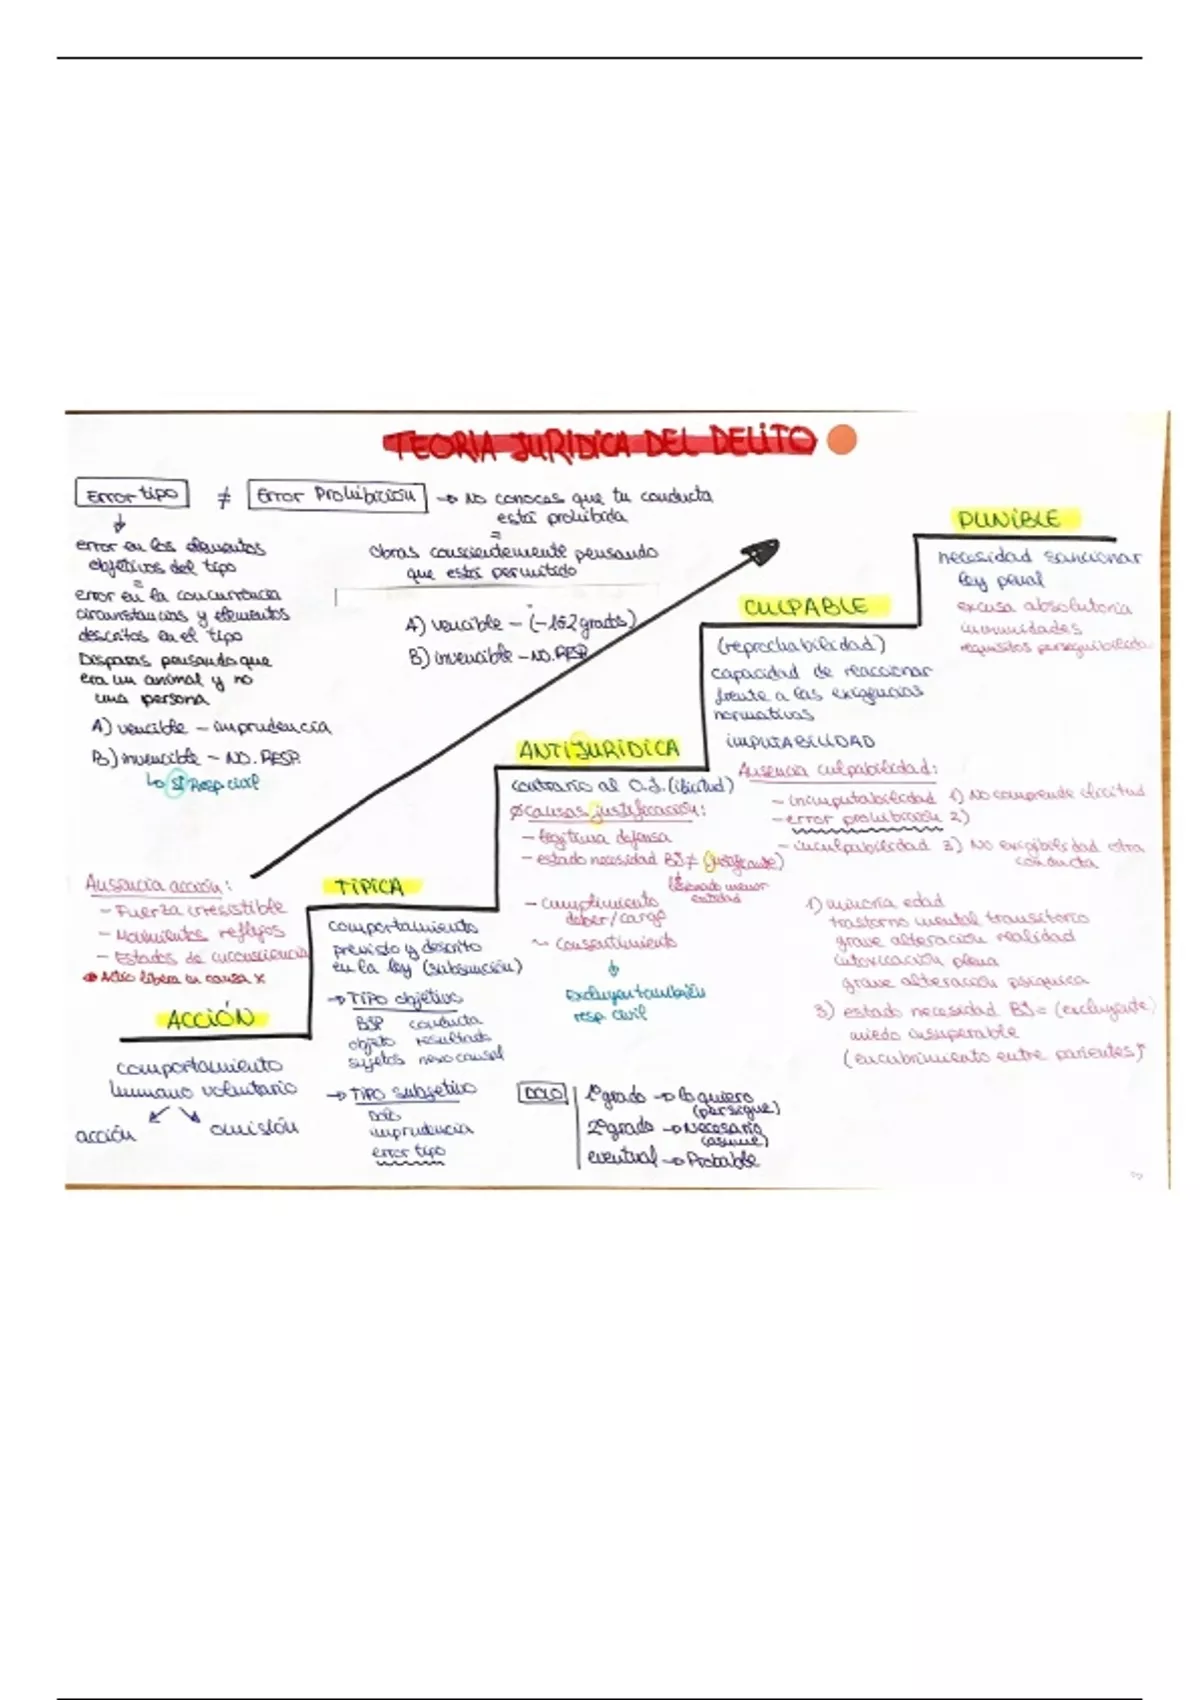 TEORIA JURIDICA DEL DELITO
Error tipo ≠ Error Prohibición → No conoces que tu conducta
está prohibida
=
obras conscientemente pensando
que está permitido
A) vencible - (-1o2 grados)
B) invencible - NO. RESP
error en los elementos
objetivos del tipo
=
error en la concurrencia
circunstancias y elementos
descritos en el tipo
Disparas pensando que
era un animal y no
una persona
A) vencible - imprudencia
B) invencible - NO. RESP.
↳ SÍ Resp civil
Ausencia acción:
- Fuerza irresistible
- Movimientos reflejos
- Estados de inconsciencia
Actio libera in causa x
ACCIÓN
comportamiento
humano voluntario
acción omisión
TÍPICA
comportamiento
previsto y descrito
en la ley (subsunción)
→ Tipo objetivo
BJP conducta
objeto resultado
sujetos nexo causal
→ Tipo subjetivo
Dolo
imprudencia
error tipo
ANTIJURÍDICA
contrario al O.J. (ilicitud)
Ø Causas justificación:
- legítima defensa
- estado necesidad BJ ≠ (justificante)
lesionado menor
entidad
- cumplimiento
deber/cargo
~ consentimiento
↓
Excluyen también
resp. civil
DOLO
1º grado → lo quiero
(persigue)
2º grado → Necesario
(asume)
eventual → Probable
CULPABLE
(reprochabilidad)
capacidad de reaccionar
frente a las exigencias
normativas
IMPUTABILIDAD
Ausencia culpabilidad:
- inimputabilidad 1) No comprende ilicitud
- error prohibición 2)
- inculpabilidad 3) No exigibilidad otra
conducta
1) minoría edad
trastorno mental transitorio
grave alteración realidad
intoxicación plena
grave alteración psíquica
3) estado necesidad BJ = (exculpante)
miedo insuperable
(encubrimiento entre parientes)*
PUNIBLE
necesidad sancionar
ley penal
excusa absolutoria
inmunidades
requisitos perseguibilidad